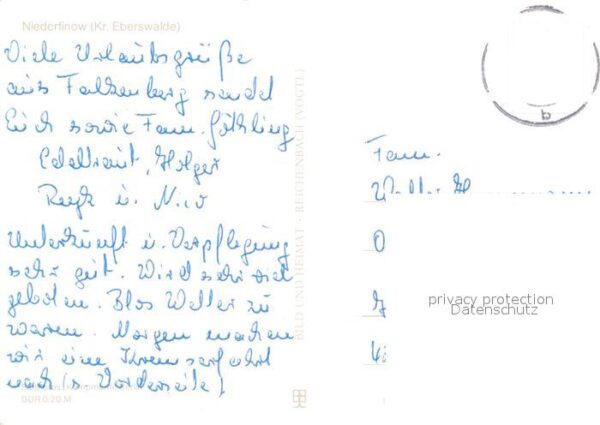 Niederfinow (Kr. Eberswalde)
Viele Urlaubsgrüße
aus Falkenberg sendet
Euch sowie Fam.
Edeltraut, Holger
u. Nico
Unterkunft u. Verpflegung
sehr gut. Wird sehr viel
geboten. Blos Wetter zu
waren. Morgen machen
wir eine
nach (s. Vorderseite)
DDR 0,20 M
BILD UND HEIMAT · REICHENBACH (VOGTL)
b
Fam.
privacy protection
Datenschutz